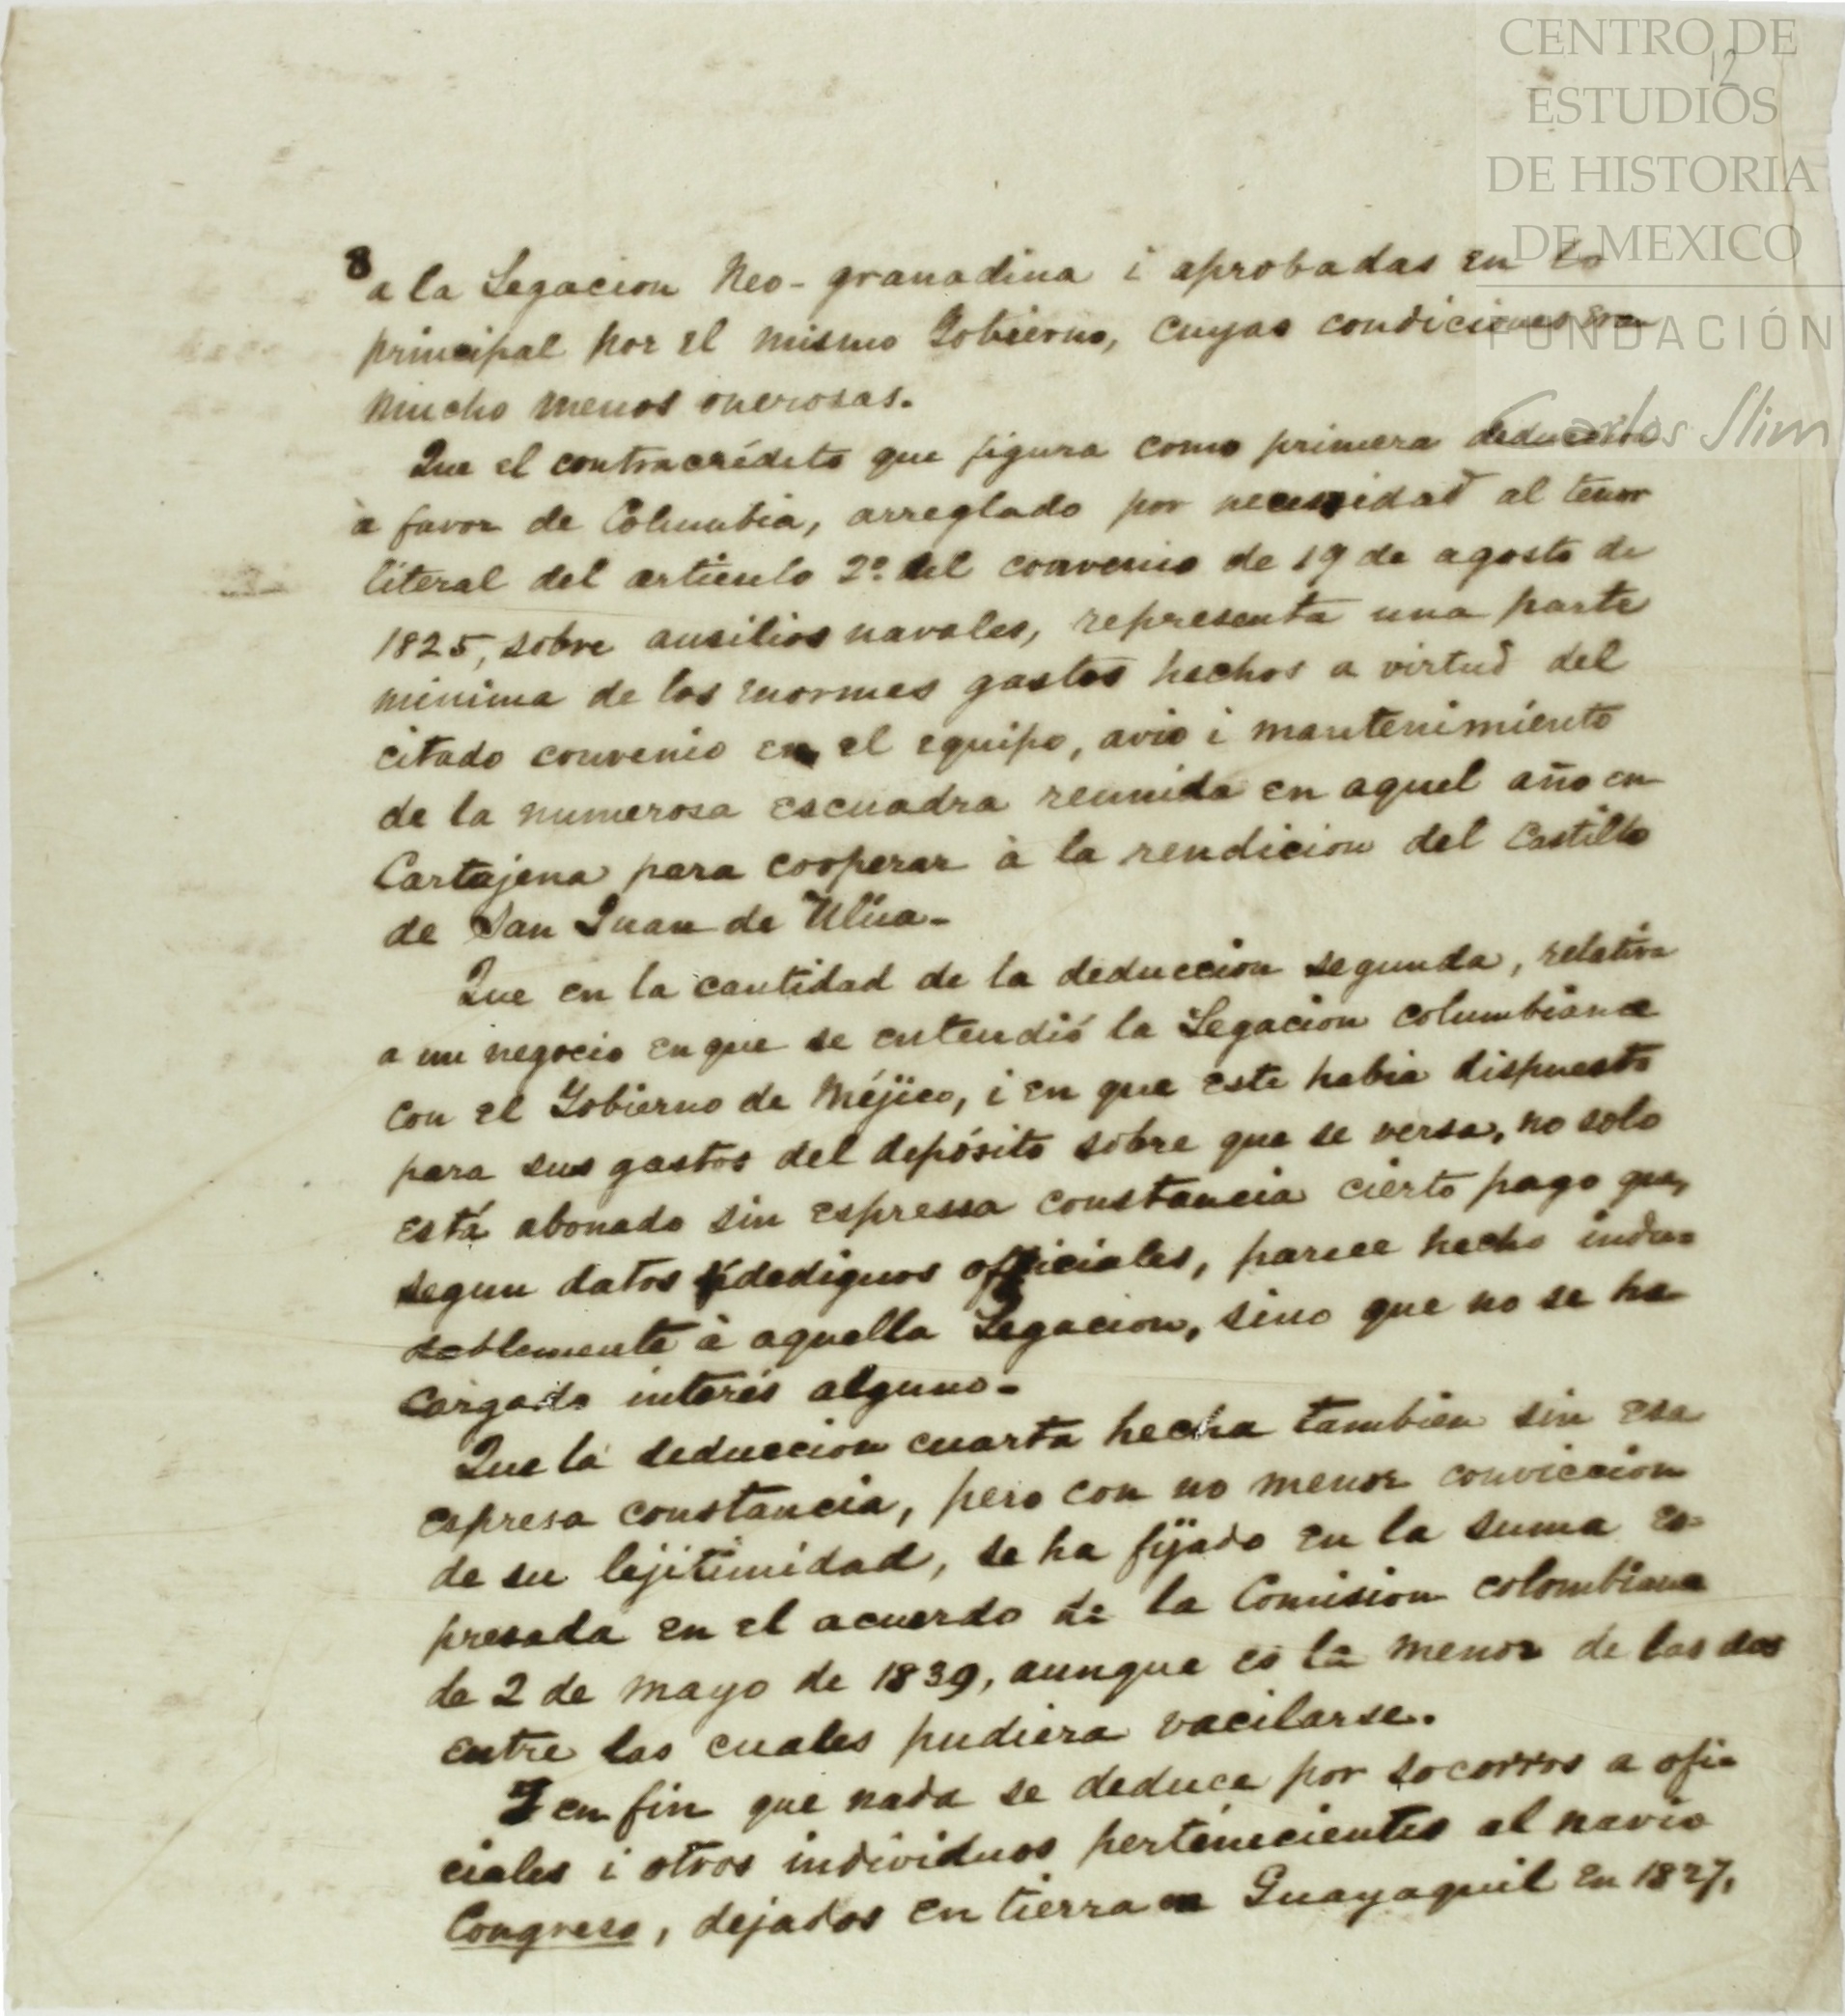 CENTRO DE
ESTUDIOS
DE HISTORIA
DE MEXICO
FUNDACIÓN
Carlos Slim
12
8
a la Legacion Neo-granadina i aprobadas en lo
principal por el mismo Gobierno, cuyas condiciones eran
mucho menos onerosas.
Que el contracrédito que figura como primera deduccion
à favor de Columbia, arreglado por necesidad al tenor
literal del artículo 2º del convenio de 19 de agosto de
1825, sobre ausilios navales, representa una parte
minima de los enormes gastos hechos a virtud del
citado convenio en el equipo, avio i mantenimiento
de la numerosa escuadra reunida en aquel año en
Cartajena para cooperar à la rendicion del Castillo
de San Juan de Ulúa-
Que en la cantidad de la deduccion segunda, relativa
a un negocio en que se entendió la Legacion columbiana
con el Gobierno de Méjico, i en que este habia dispuesto
para sus gastos del depósito sobre que se versa, no solo
está abonado sin espressa constancia cierto pago que,
segun datos fidedignos officiales, parece hecho indu=
dablemente à aquella Legacion, sino que no se ha
cargado interés alguno-
Que la deduccion cuarta hecha tambien sin esa
espresa constancia, pero con no menor conviccion
de su lejitimidad, se ha fijado en la suma es=
presada en el acuerdo de la Comision colombiana
de 2 de mayo de 1839, aunque es la menor de las dos
entre las cuales pudiera vacilarse.
I en fin que nada se deduce por socorros a ofi=
ciales i otros individuos pertenecientes al navio
Congreso, dejados en tierra en Guayaquil en 1827,